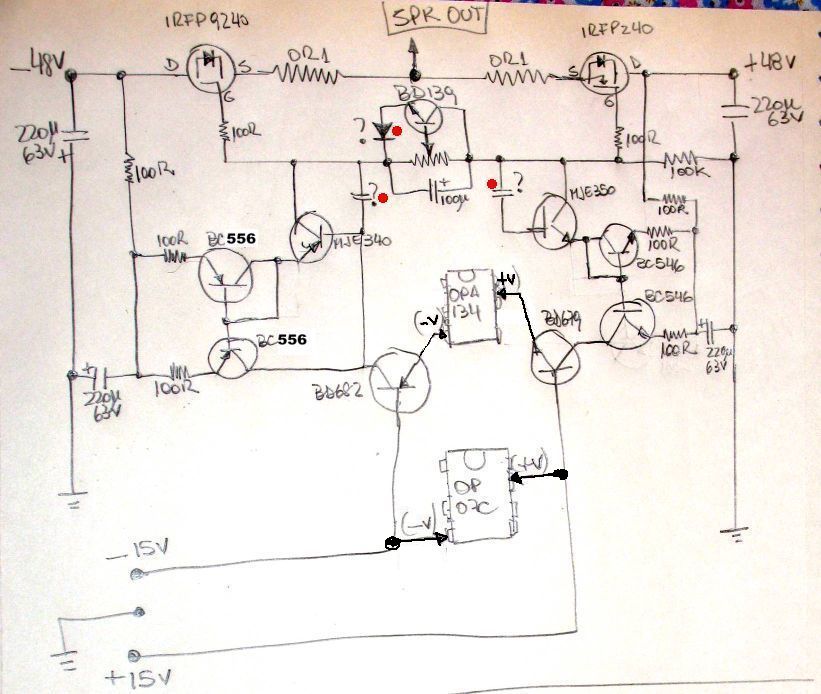 SPK OUT
IRFP9240
IRFP240
-48V
D
S
G
0R1
0R1
S
D
G
+48V
BD139
220µ
63V
+
100R
?
100R
220µ
63V
100R
+
100µ
?
?
100K
MJE350
100R
100R
BC556
MJE340
100R
BC546
OPA
134
+V
(-V)
BC546
BD679
BC556
100R
+
220µ
63V
+
220µ
63V
100R
BD682
OP
07C
(+V)
(-V)
-15V
+15V